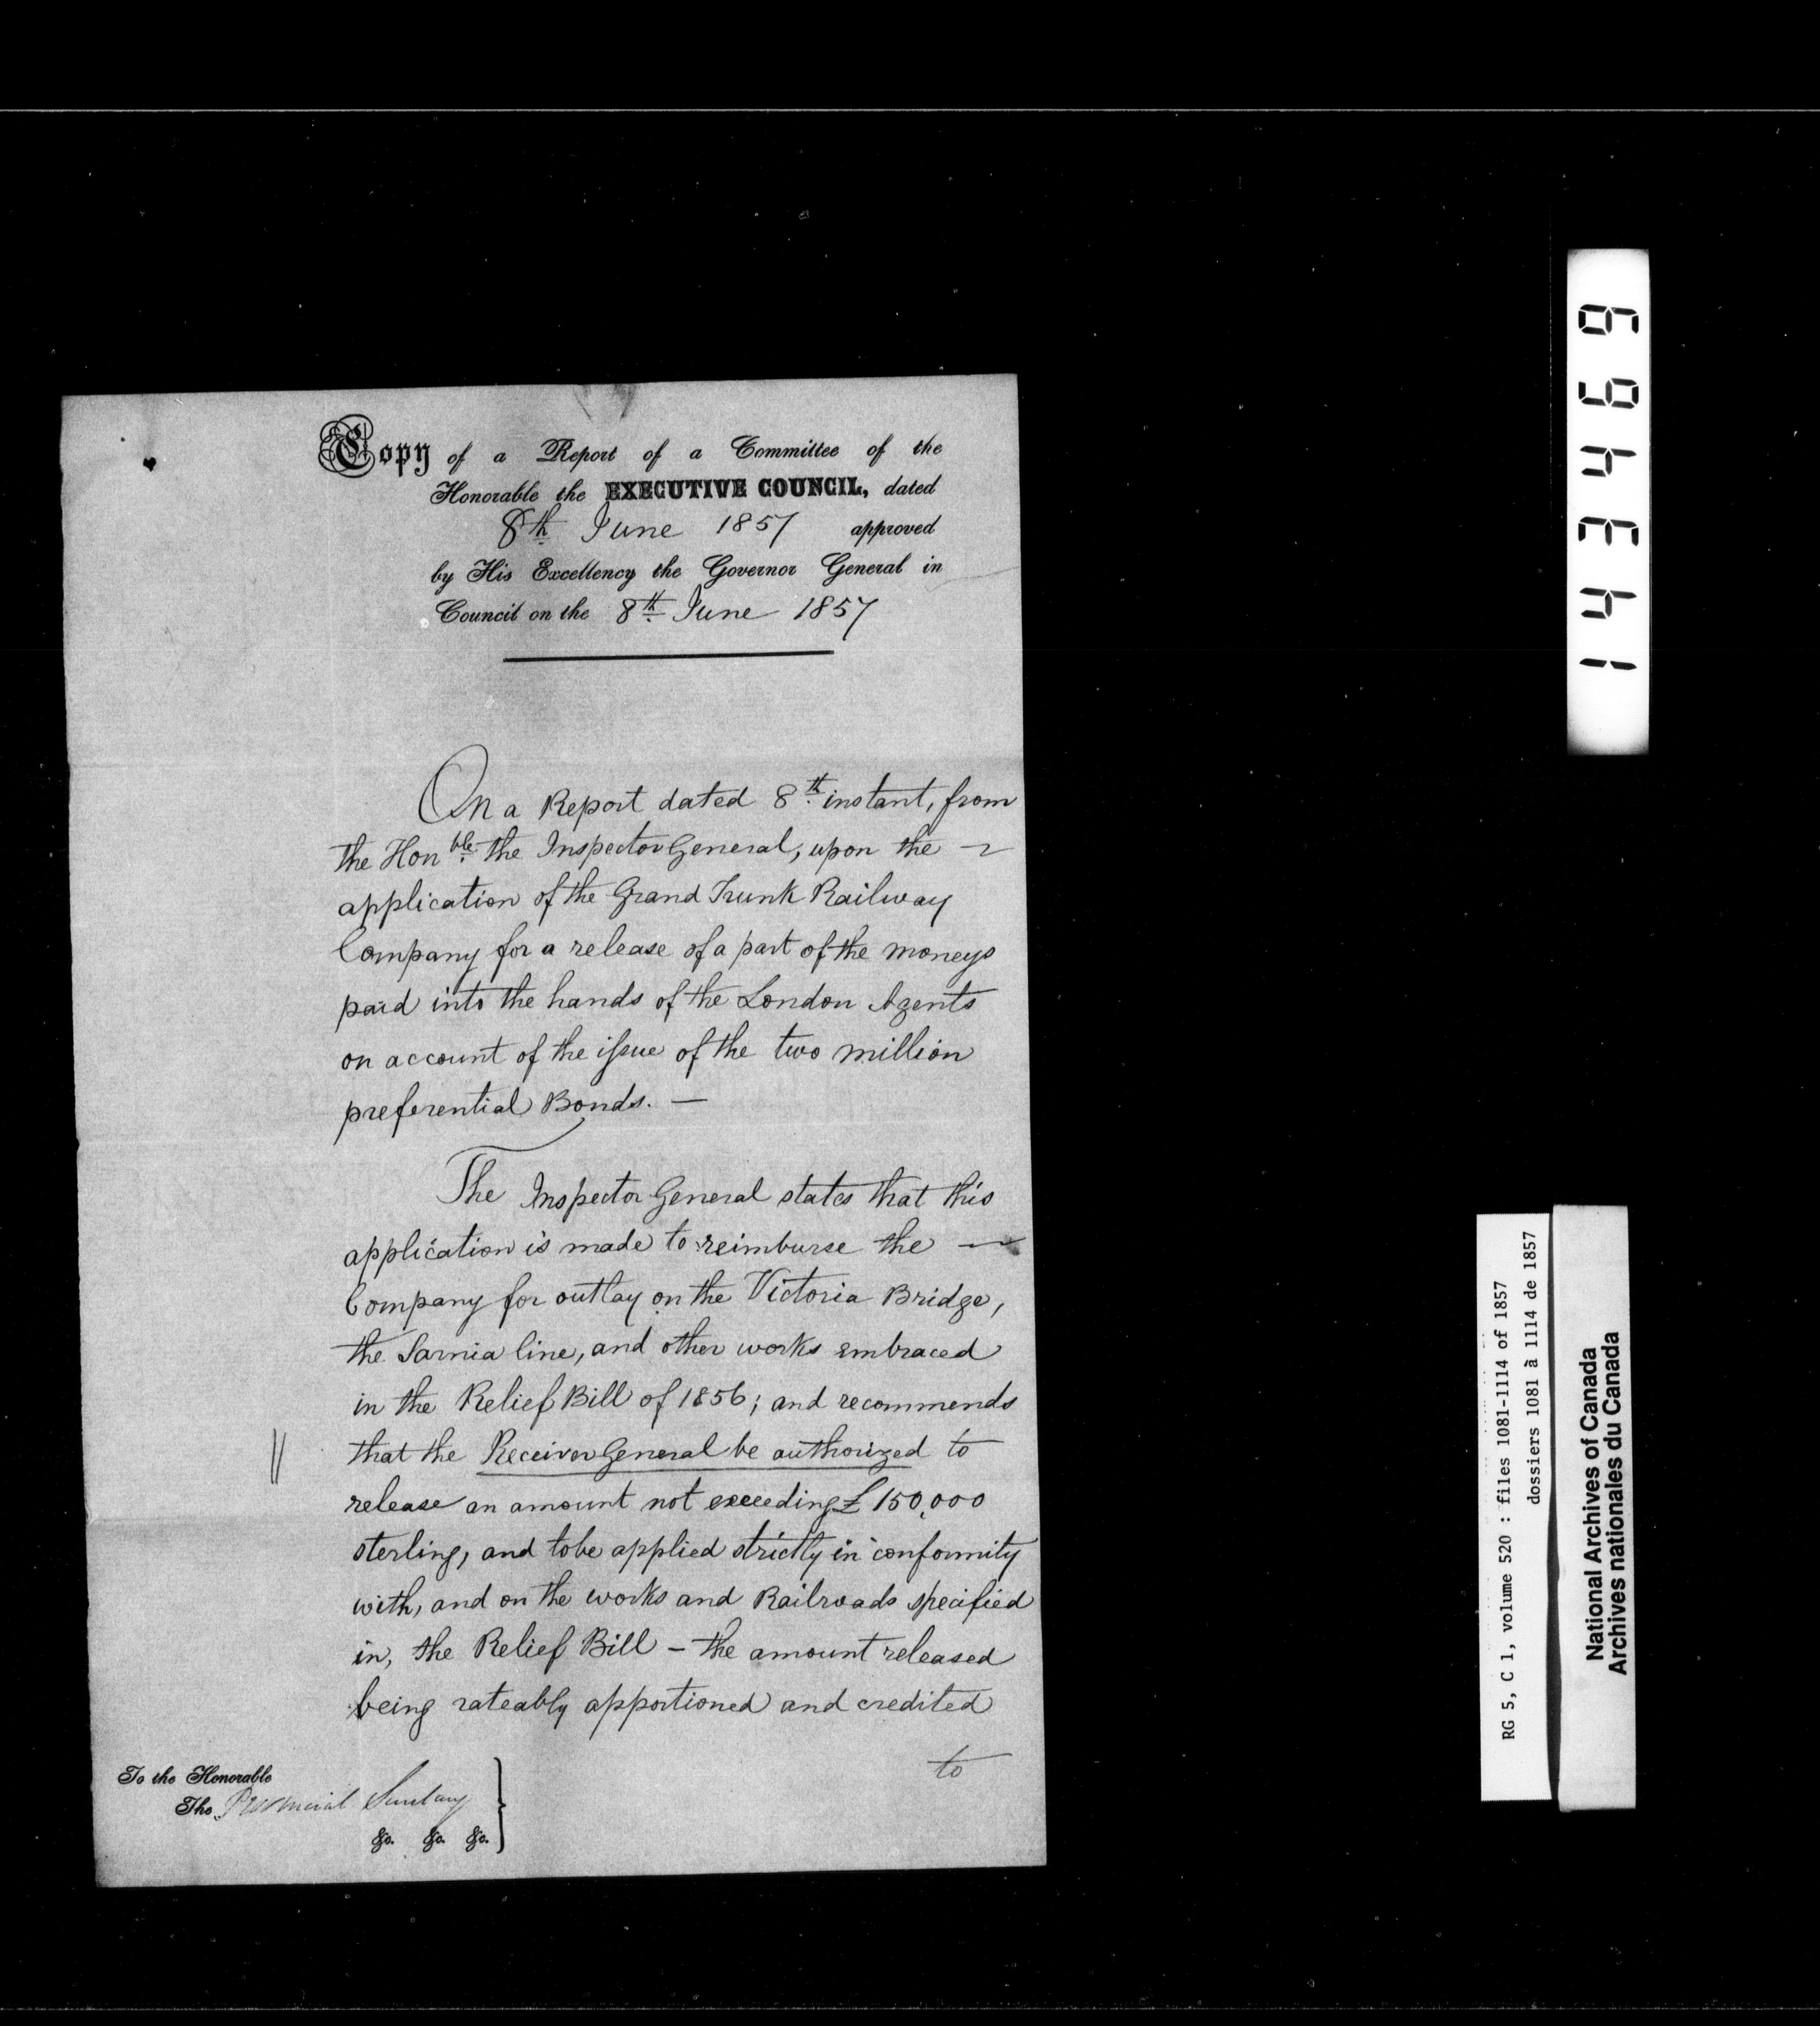 Copy of a Report of a Committee of the
Honorable the EXECUTIVE COUNCIL, dated
8th June 1857 approved
by His Excellency the Governor General in
Council on the 8th June 1857
On a Report dated 8th instant, from
the Honble the Inspector General, upon the
application of the Grand Trunk Railway
Company for a release of a part of the moneys
paid into the hands of the London Agents
on account of the issue of the two million
preferential Bonds. —
The Inspector General states that this
application is made to reimburse the —
Company for outlay on the Victoria Bridge,
the Sarnia line, and other works embraced
in the Relief Bill of 1856; and recommends
that the Receiver General be authorized to
release an amount not exceeding £150,000
sterling, and to be applied strictly in conformity
with, and on the works and Railroads specified
in, the Relief Bill – the amount released
being rateably apportioned and credited
to
To the Honorable
The Provincial Secretary
&c. &c. &c.
14 3469
RG 5, C 1, volume 520 : files 1081-1114 of 1857
dossiers 1081 à 1114 de 1857
National Archives of Canada
Archives nationales du Canada